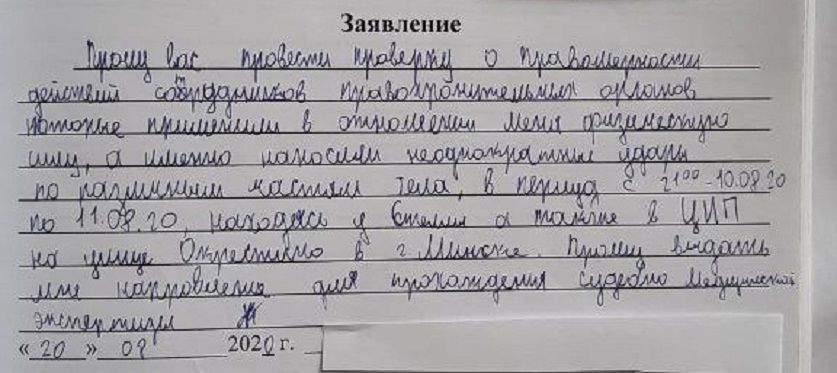 Заявление
Прошу вас провести проверку о правомерности
действий сотрудников правохронительных органов
которые применили в отношении меня физическую
силу, а именно наносили неоднократные удары
по различным частям тела, в период с 21⁰⁰-10.08.20
по 11.08.20, находясь у Стеллы а также в ЦИП
на улице Окрестино в г. Минске. Прошу выдать
мне направления для прохаждения судебно медицинской
экспертизы
«20» 08 2020 г.